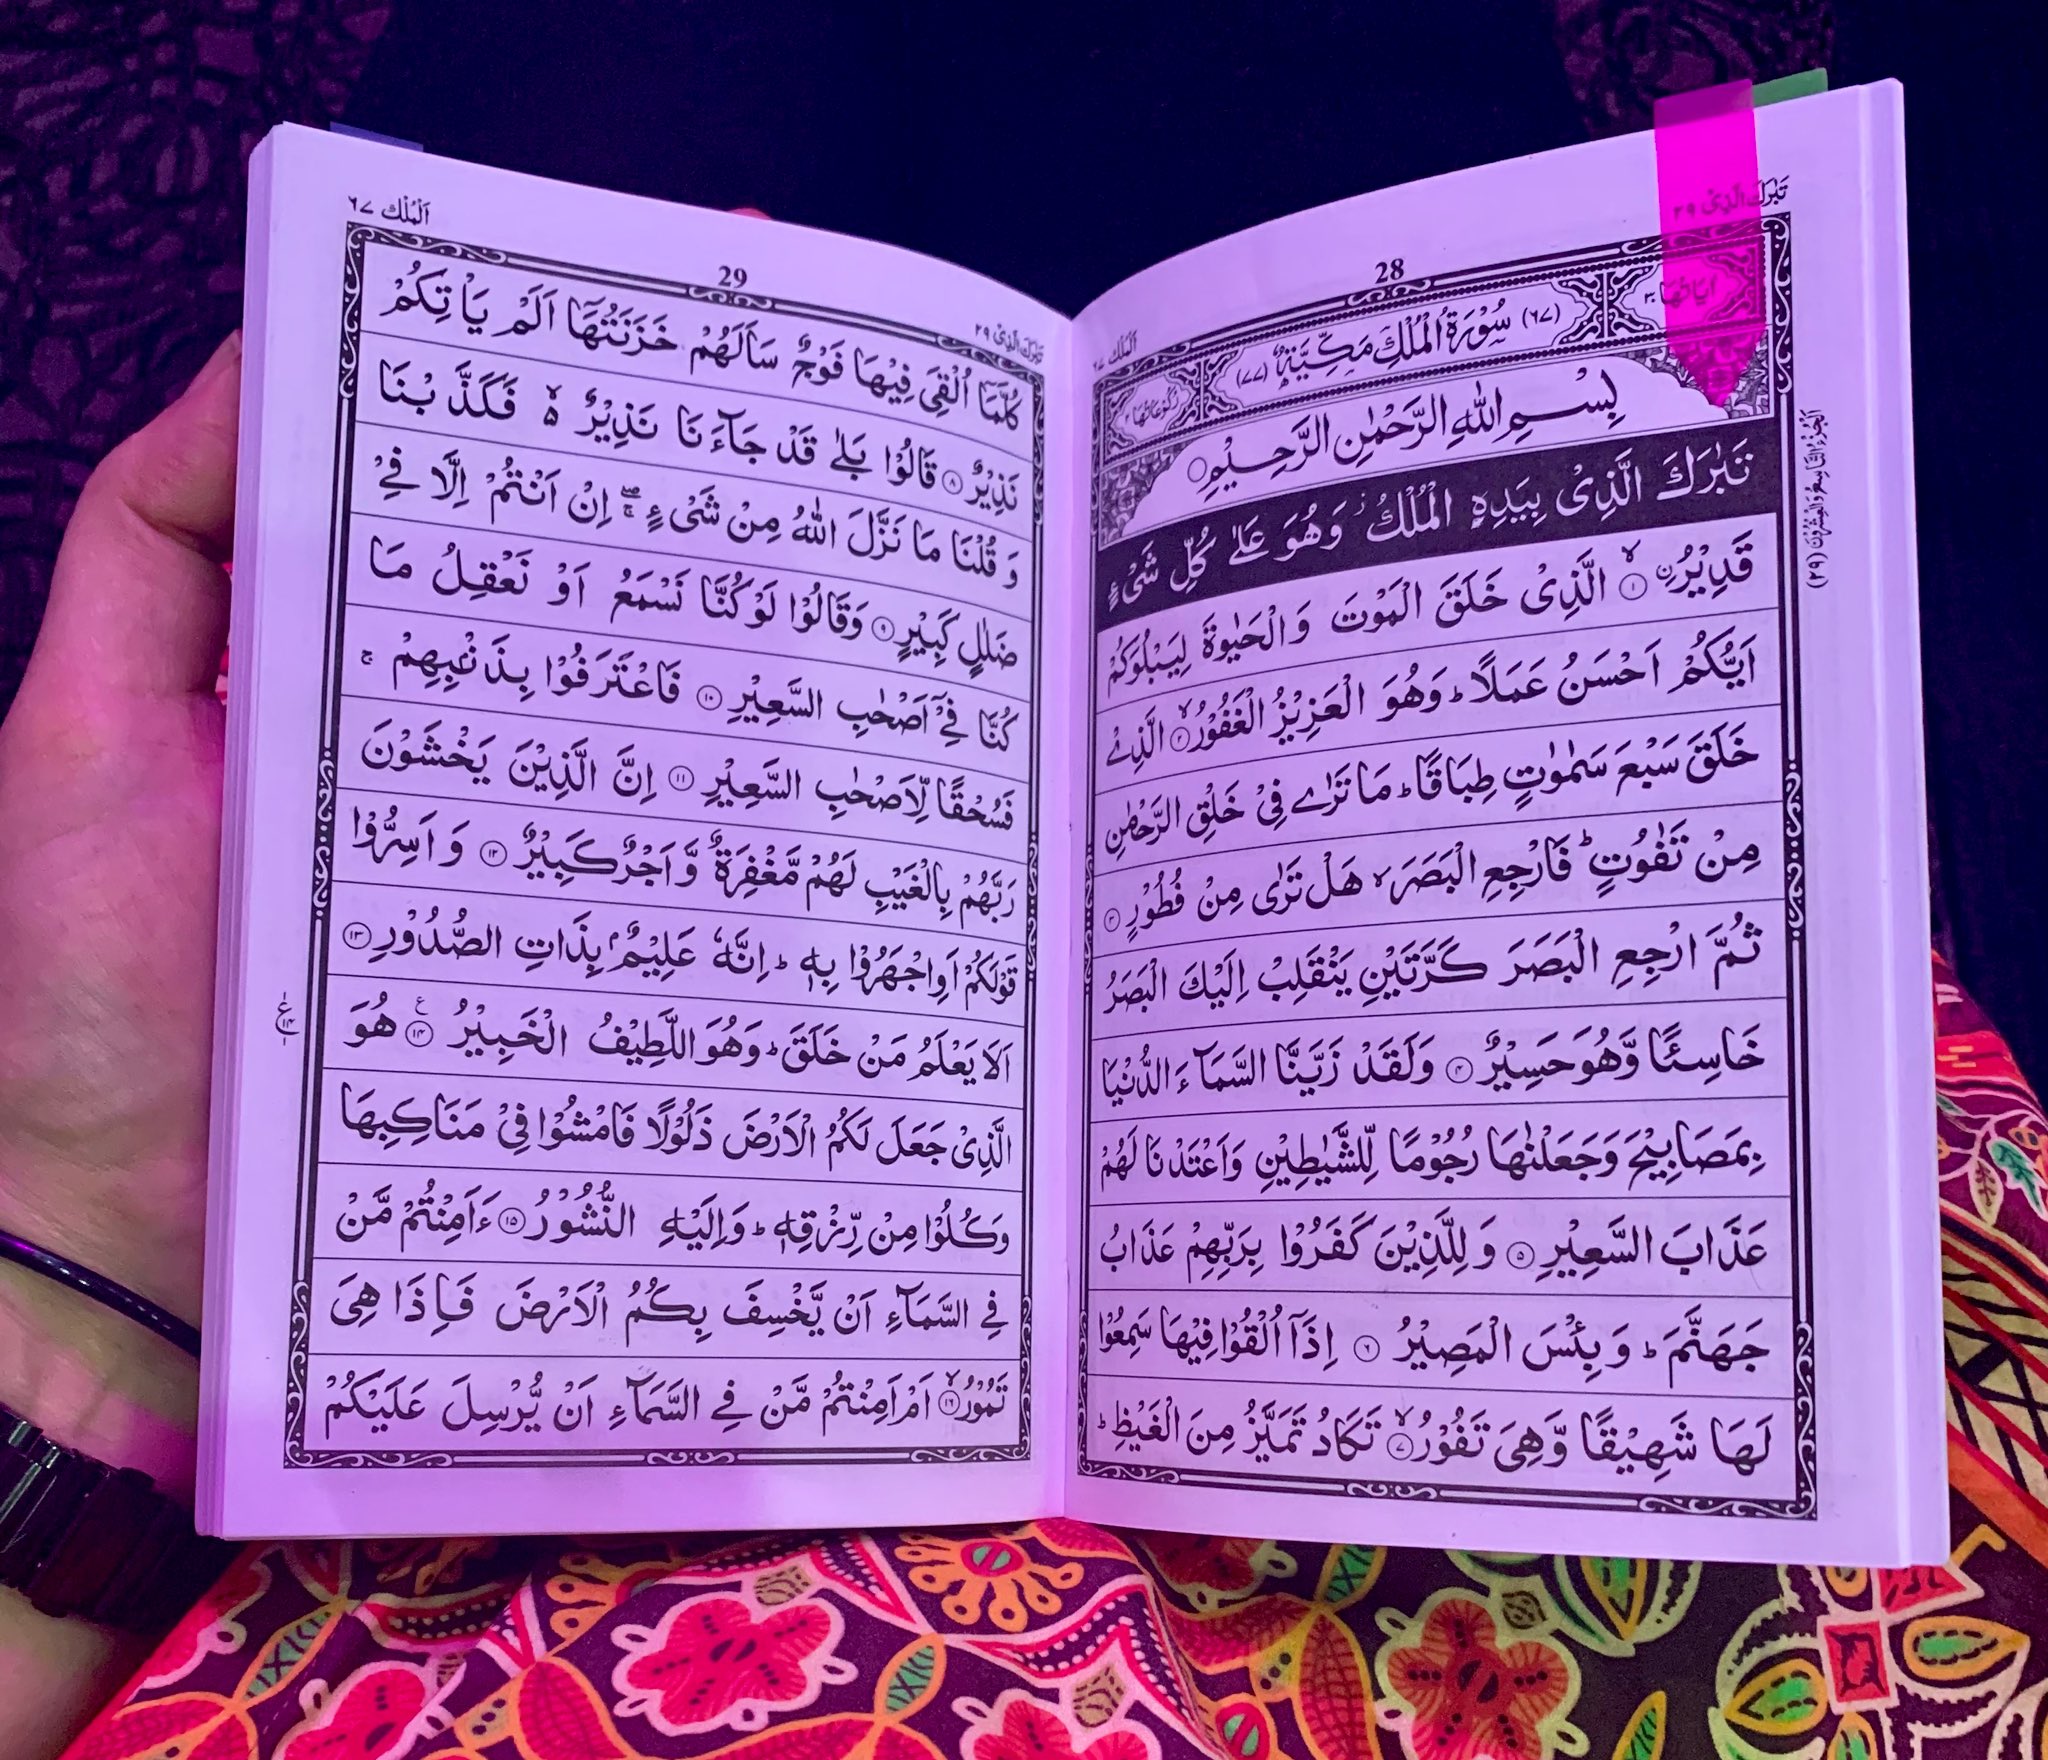 تَبٰرَكَ الَّذِیْ ٢٩
28
اَلْمُلْك ٦٧
اٰیَاتُهَا ٣٠
(٦٧) سُوْرَةُ الْمُلْكِ مَكِّیَّةٌ (٧٧)
رُكُوْعَاتُهَا ٢
بِسْمِ اللّٰهِ الرَّحْمٰنِ الرَّحِیْمِ
تَبٰرَكَ الَّذِیْ بِیَدِهِ الْمُلْكُ ز وَهُوَ عَلٰی كُلِّ شَیْءٍ
قَدِیْرُ ن ۙ ١ الَّذِیْ خَلَقَ الْمَوْتَ وَالْحَیٰوةَ لِیَبْلُوَكُمْ
اَیُّكُمْ اَحْسَنُ عَمَلًا ؕ وَهُوَ الْعَزِیْزُ الْغَفُوْرُ ۙ ٢ الَّذِیْ
خَلَقَ سَبْعَ سَمٰوٰتٍ طِبَاقًا ؕ مَا تَرٰی فِیْ خَلْقِ الرَّحْمٰنِ
مِنْ تَفٰوُتٍ ؕ فَارْجِعِ الْبَصَرَ ۙ هَلْ تَرٰی مِنْ فُطُوْرٍ ٣
ثُمَّ ارْجِعِ الْبَصَرَ كَرَّتَیْنِ یَنْقَلِبْ اِلَیْكَ الْبَصَرُ
خَاسِئًا وَّهُوَ حَسِیْرٌ ٤ وَلَقَدْ زَیَّنَّا السَّمَآءَ الدُّنْیَا
بِمَصَابِیْحَ وَجَعَلْنٰهَا رُجُوْمًا لِّلشَّیٰطِیْنِ وَاَعْتَدْنَا لَهُمْ
عَذَابَ السَّعِیْرِ ٥ وَلِلَّذِیْنَ كَفَرُوْا بِرَبِّهِمْ عَذَابُ
جَهَنَّمَ ؕ وَبِئْسَ الْمَصِیْرُ ٦ اِذَاۤ اُلْقُوْا فِیْهَا سَمِعُوْا
لَهَا شَهِیْقًا وَّهِیَ تَفُوْرُ ۙ ٧ تَكَادُ تَمَیَّزُ مِنَ الْغَیْظِ ؕ
اَلْجُزْءُ التَّاسِعُ وَالْعِشْرُوْنَ (٢٩)
تَبٰرَكَ الَّذِیْ ٢٩
29
اَلْمُلْك ٦٧
كُلَّمَاۤ اُلْقِیَ فِیْهَا فَوْجٌ سَاَلَهُمْ خَزَنَتُهَاۤ اَلَمْ یَاْتِكُمْ
نَذِیْرٌ ٨ قَالُوْا بَلٰی قَدْ جَآءَنَا نَذِیْرٌ ۙ۬ فَكَذَّبْنَا
وَقُلْنَا مَا نَزَّلَ اللّٰهُ مِنْ شَیْءٍ ۖۚ اِنْ اَنْتُمْ اِلَّا فِیْ
ضَلٰلٍ كَبِیْرٍ ٩ وَقَالُوْا لَوْ كُنَّا نَسْمَعُ اَوْ نَعْقِلُ مَا
كُنَّا فِیْۤ اَصْحٰبِ السَّعِیْرِ ١٠ فَاعْتَرَفُوْا بِذَنْۢبِهِمْ ۚ
فَسُحْقًا لِّاَصْحٰبِ السَّعِیْرِ ١١ اِنَّ الَّذِیْنَ یَخْشَوْنَ
رَبَّهُمْ بِالْغَیْبِ لَهُمْ مَّغْفِرَةٌ وَّاَجْرٌ كَبِیْرٌ ١٢ وَاَسِرُّوْا
قَوْلَكُمْ اَوِاجْهَرُوْا بِهٖ ؕ اِنَّهٗ عَلِیْمٌۢ بِذَاتِ الصُّدُوْرِ ١٣
اَلَا یَعْلَمُ مَنْ خَلَقَ ؕ وَهُوَ اللَّطِیْفُ الْخَبِیْرُ ١٤ هُوَ
الَّذِیْ جَعَلَ لَكُمُ الْاَرْضَ ذَلُوْلًا فَامْشُوْا فِیْ مَنَاكِبِهَا
وَكُلُوْا مِنْ رِّزْقِهٖ ؕ وَاِلَیْهِ النُّشُوْرُ ١٥ ءَاَمِنْتُمْ مَّنْ
فِی السَّمَآءِ اَنْ یَّخْسِفَ بِكُمُ الْاَرْضَ فَاِذَا هِیَ
تَمُوْرُ ۙ ١٦ اَمْ اَمِنْتُمْ مَّنْ فِی السَّمَآءِ اَنْ یُّرْسِلَ عَلَیْكُمْ